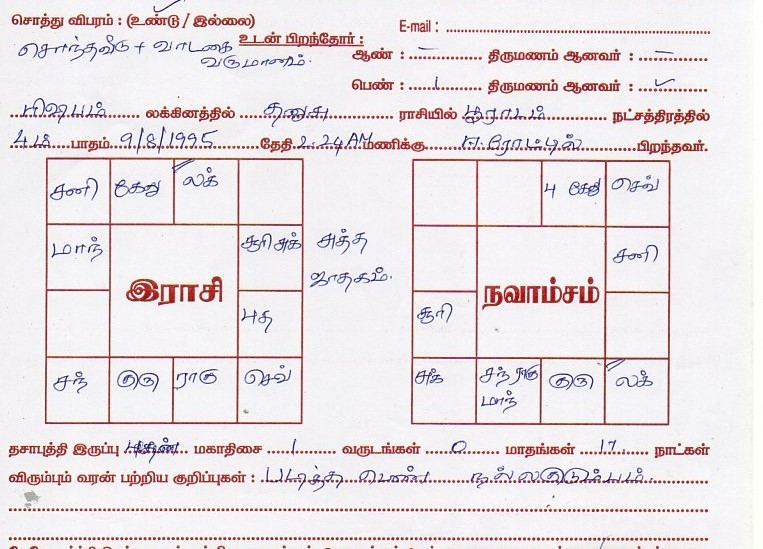 சொத்து விபரம் : (உண்டு / இல்லை)
E-mail :
சொந்தவீடு + வாடகை வருமானம்.
உடன் பிறந்தோர் : ஆண் : – திருமணம் ஆனவர் : –
பெண் : 1 திருமணம் ஆனவர் : ✓
ரிஷபம் லக்கினத்தில் தனுசு ராசியில் பூராடம் நட்சத்திரத்தில்
4ம் பாதம் 9/8/1995 தேதி 2.24AM மணிக்கு ஈரோட்டில் பிறந்தவர்.
சனி கேது லக்
மாந் சூரி சுக்
புத
சந் குரு ராகு செவ்
இராசி
சுத்த ஜாதகம்.
4 கேது செவ்
சனி
சூரி
சுக் சந் ராகு மாந் குரு லக்
நவாம்சம்
தசாபுத்தி இருப்பு சுக்ரன் மகாதிசை 1 வருடங்கள் 0 மாதங்கள் 17 நாட்கள்
விரும்பும் வரன் பற்றிய குறிப்புகள் : படித்த பெண் நல்லகுடும்பம்.